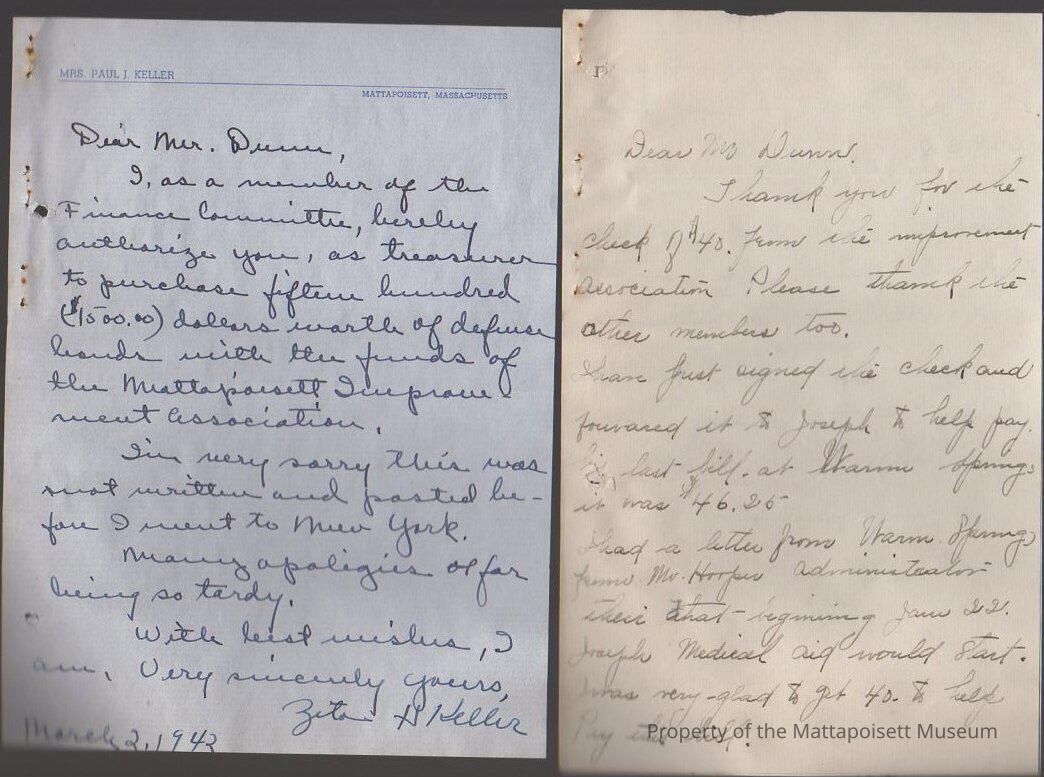 MRS. PAUL J. KELLER
MATTAPOISETT, MASSACHUSETTS
Dear Mr. Dunn,
I, as a member of the
Finance Committee, hereby
authorize you, as treasurer
to purchase fifteen hundred
($1500.00) dollars worth of defense
bonds with the funds of
the Mattapoisett Improve
ment Association.
I'm very sorry this was
not written and posted be-
fore I went to New York.
Many apologies for
being so tardy.
With best wishes, I
am, Very sincerely yours,
Zita D Keller
March 2, 1942
Dear Mr Dunn.
Thank you for the
check of $40. from the improvement
association Please thank the
other members too.
I have just signed the check and
forwared it to Joseph to help pay.
his last bill. at Warm Springs
it was $46.25
I had a letter from Warm. Springs
from Mr. Hooper administrator
their that begining Jan 22.
Joseph Medical aid would start.
I was very glad to get 40. to help
Pay this bill.
Property of the Mattapoisett Museum